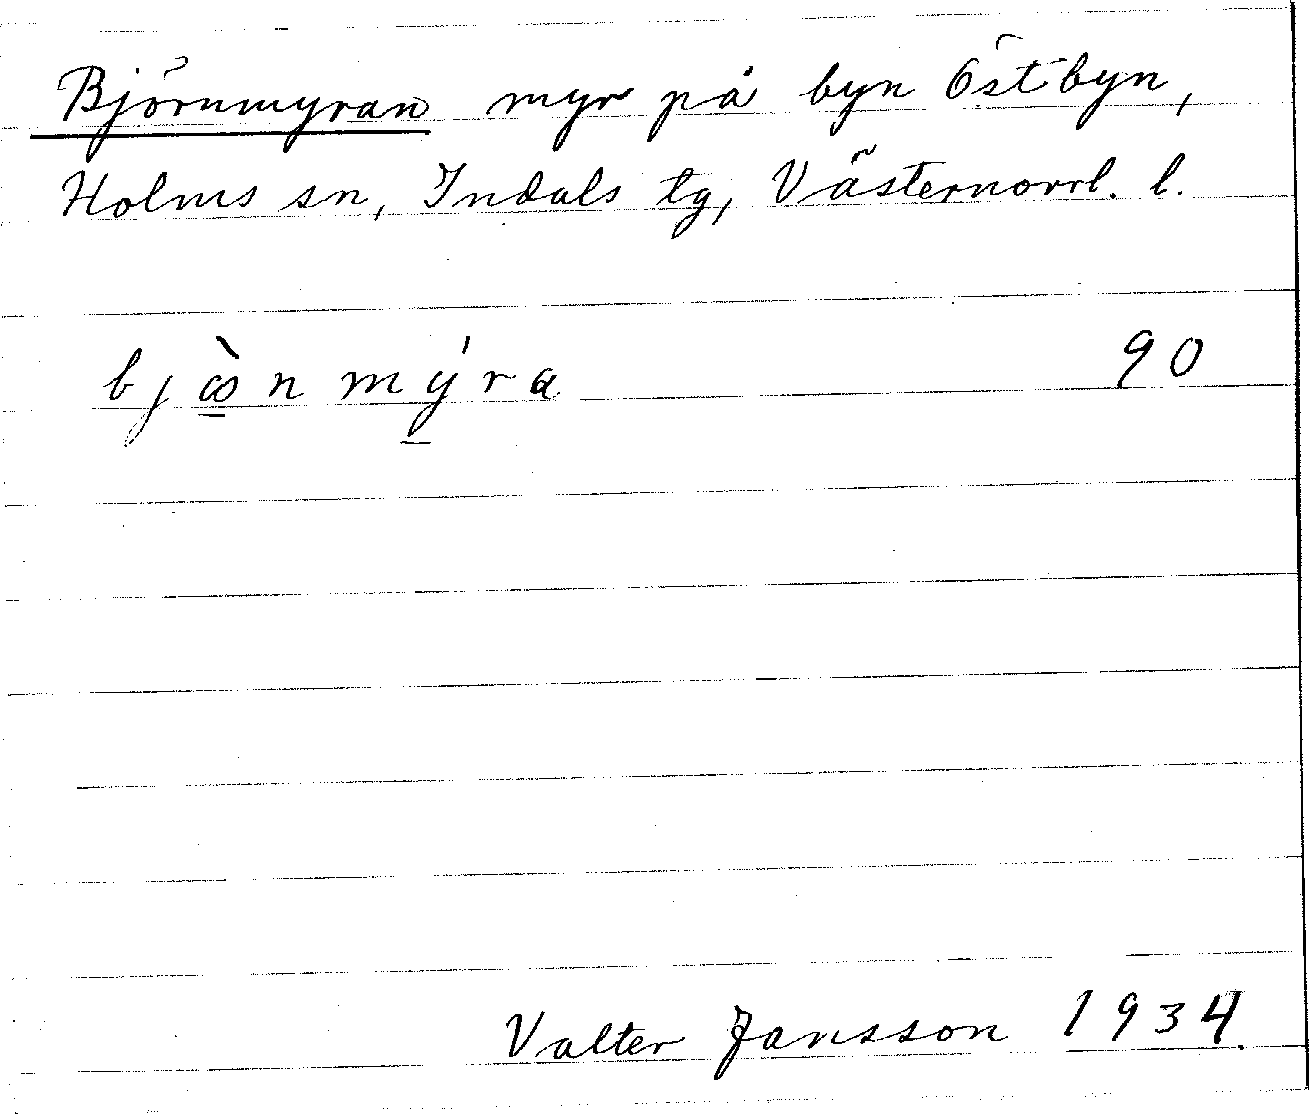 Björnmyran myr på byn Östbyn,
Holms sn, Indals tg, Västernorrl. l.
bjꝏ̲̀n mý̲ra 90
Valter Jansson 1934.